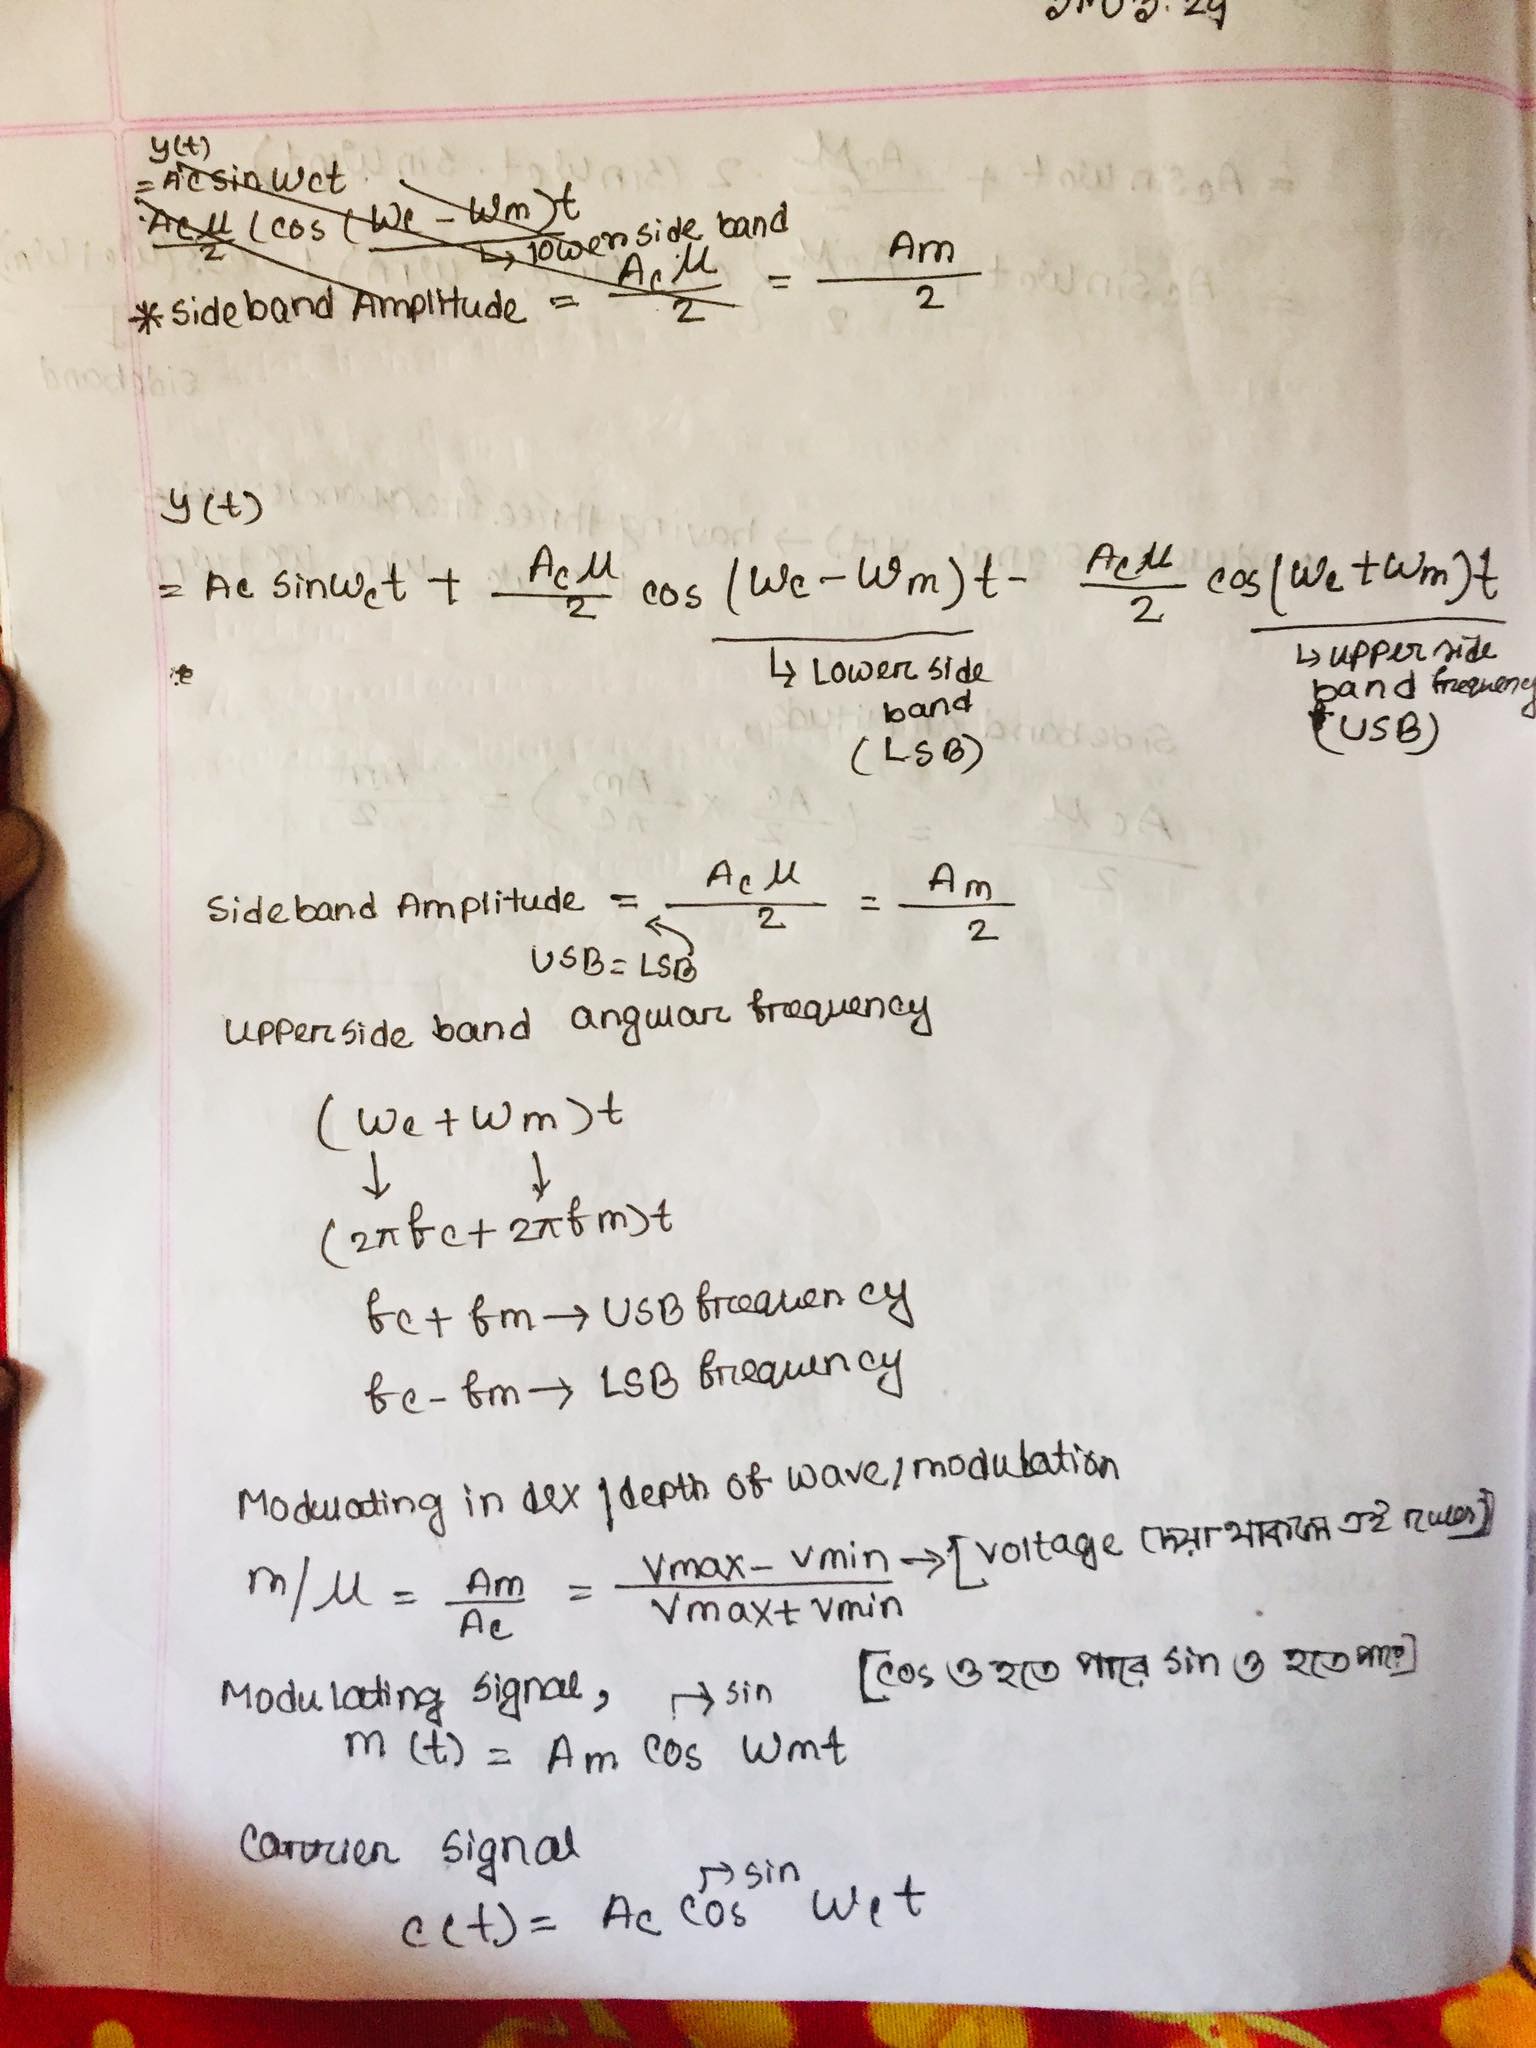 y(t)
= Ac sin Wct
Acμ/2 (cos (Wc - Wm)t
↳ lower side band
* Sideband Amplitude = Acμ/2 = Am/2
y(t)
= Ac sinWct + Acμ/2 cos (Wc - Wm)t - Acμ/2 cos(Wc + Wm)t
↳ Lower side band (LSB)
↳ upper side band frequency (USB)
Sideband Amplitude = Acμ/2 = Am/2
USB = LSB
Upper side band angular frequency
(Wc + Wm)t
↓ ↓
(2πfc + 2πfm)t
fc + fm → USB frequency
fc - fm → LSB frequency
Modulating index / depth of wave / modulation
m/μ = Am/Ac = Vmax - Vmin / Vmax + Vmin → [voltage দেয়া থাকলে এই rules]
Modulating signal, [cos ও হতে পারে sin ও হতে পারে]
↱ sin
m(t) = Am cos Wmt
Carrier signal
↱ sin
c(t) = Ac cos Wct